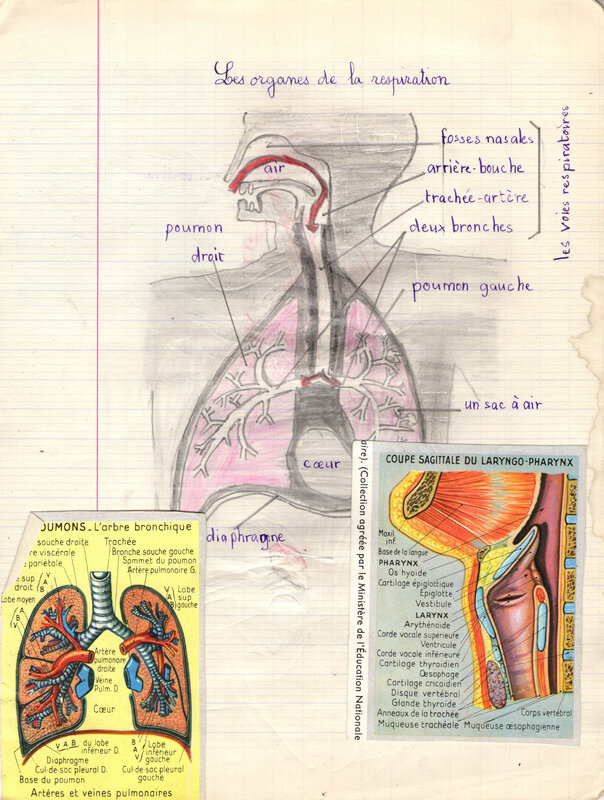 Les organes de la respiration
fosses nasales
air
arrière-bouche
trachée-artère
deux bronches
les voies respiratoires
poumon
droit
poumon gauche
un sac à air
cœur
diaphragme
aire). (Collection agréée par le Ministère de l'Éducation Nationale
OUMONS_L'arbre bronchique
souche droite
Trachée
Bronche souche gauche
re viscérale
Sommet du poumon
pariétale
Artère pulmonaire G.
V
A
B
sup.
droit
Lobe moyen
A
B
V
V
A
B
Lobe
sup.
gauche
Artère
pulmonaire
droite
Veine
Pulm. D.
Cœur
V A B du lobe
inférieur D.
B
A
V
Lobe
inférieur
gauche
Diaphragme
Cul-de-sac pleural D.
Cul-de-sac pleural
gauche
Base du poumon
Artères et veines pulmonaires
COUPE SAGITTALE DU LARYNGO-PHARYNX
Maxil
inf.
Base de la langue
PHARYNX
Os hyoïde
Cartilage épiglottique
Épiglotte
Vestibule
LARYNX
Arythénoïde
Corde vocale supérieure
Ventricule
Corde vocale inférieure
Cartilage thyroïdien
Œsophage
Cartilage cricoïdien
Disque vertébral
Glande thyroïde
Anneaux de la trachée
Corps vertébral
Muqueuse trachéale
Muqueuse œsophagienne